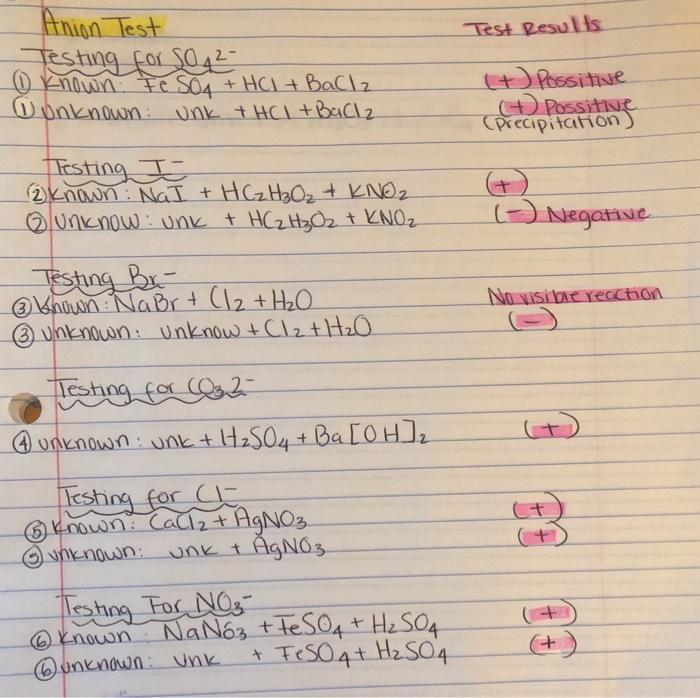 Anion Test Test Results
Testing for SO42-
① Known: FeSO4 + HCl + BaCl2 (+) Possitive
① Unknown: unk + HCl + BaCl2 (+) Possitive
(Precipitation)
Testing I-
② Known: NaI + HC2H3O2 + KNO2 (+)
② Unknow: unk + HC2H3O2 + KNO2 (-) Negative
Testing Br-
③ Known: NaBr + Cl2 + H2O No visible reaction
③ Unknown: unknow + Cl2 + H2O (-)
Testing for CO32-
④ unknown: unk + H2SO4 + Ba[OH]2 (+)
Testing for Cl-
⑤ Known: CaCl2 + AgNO3 (+)
⑤ unknown: unk + AgNO3 (+)
Testing For NO3-
⑥ Known: NaNO3 + FeSO4 + H2SO4 (+)
⑥ unknown: unk + FeSO4 + H2SO4 (+)